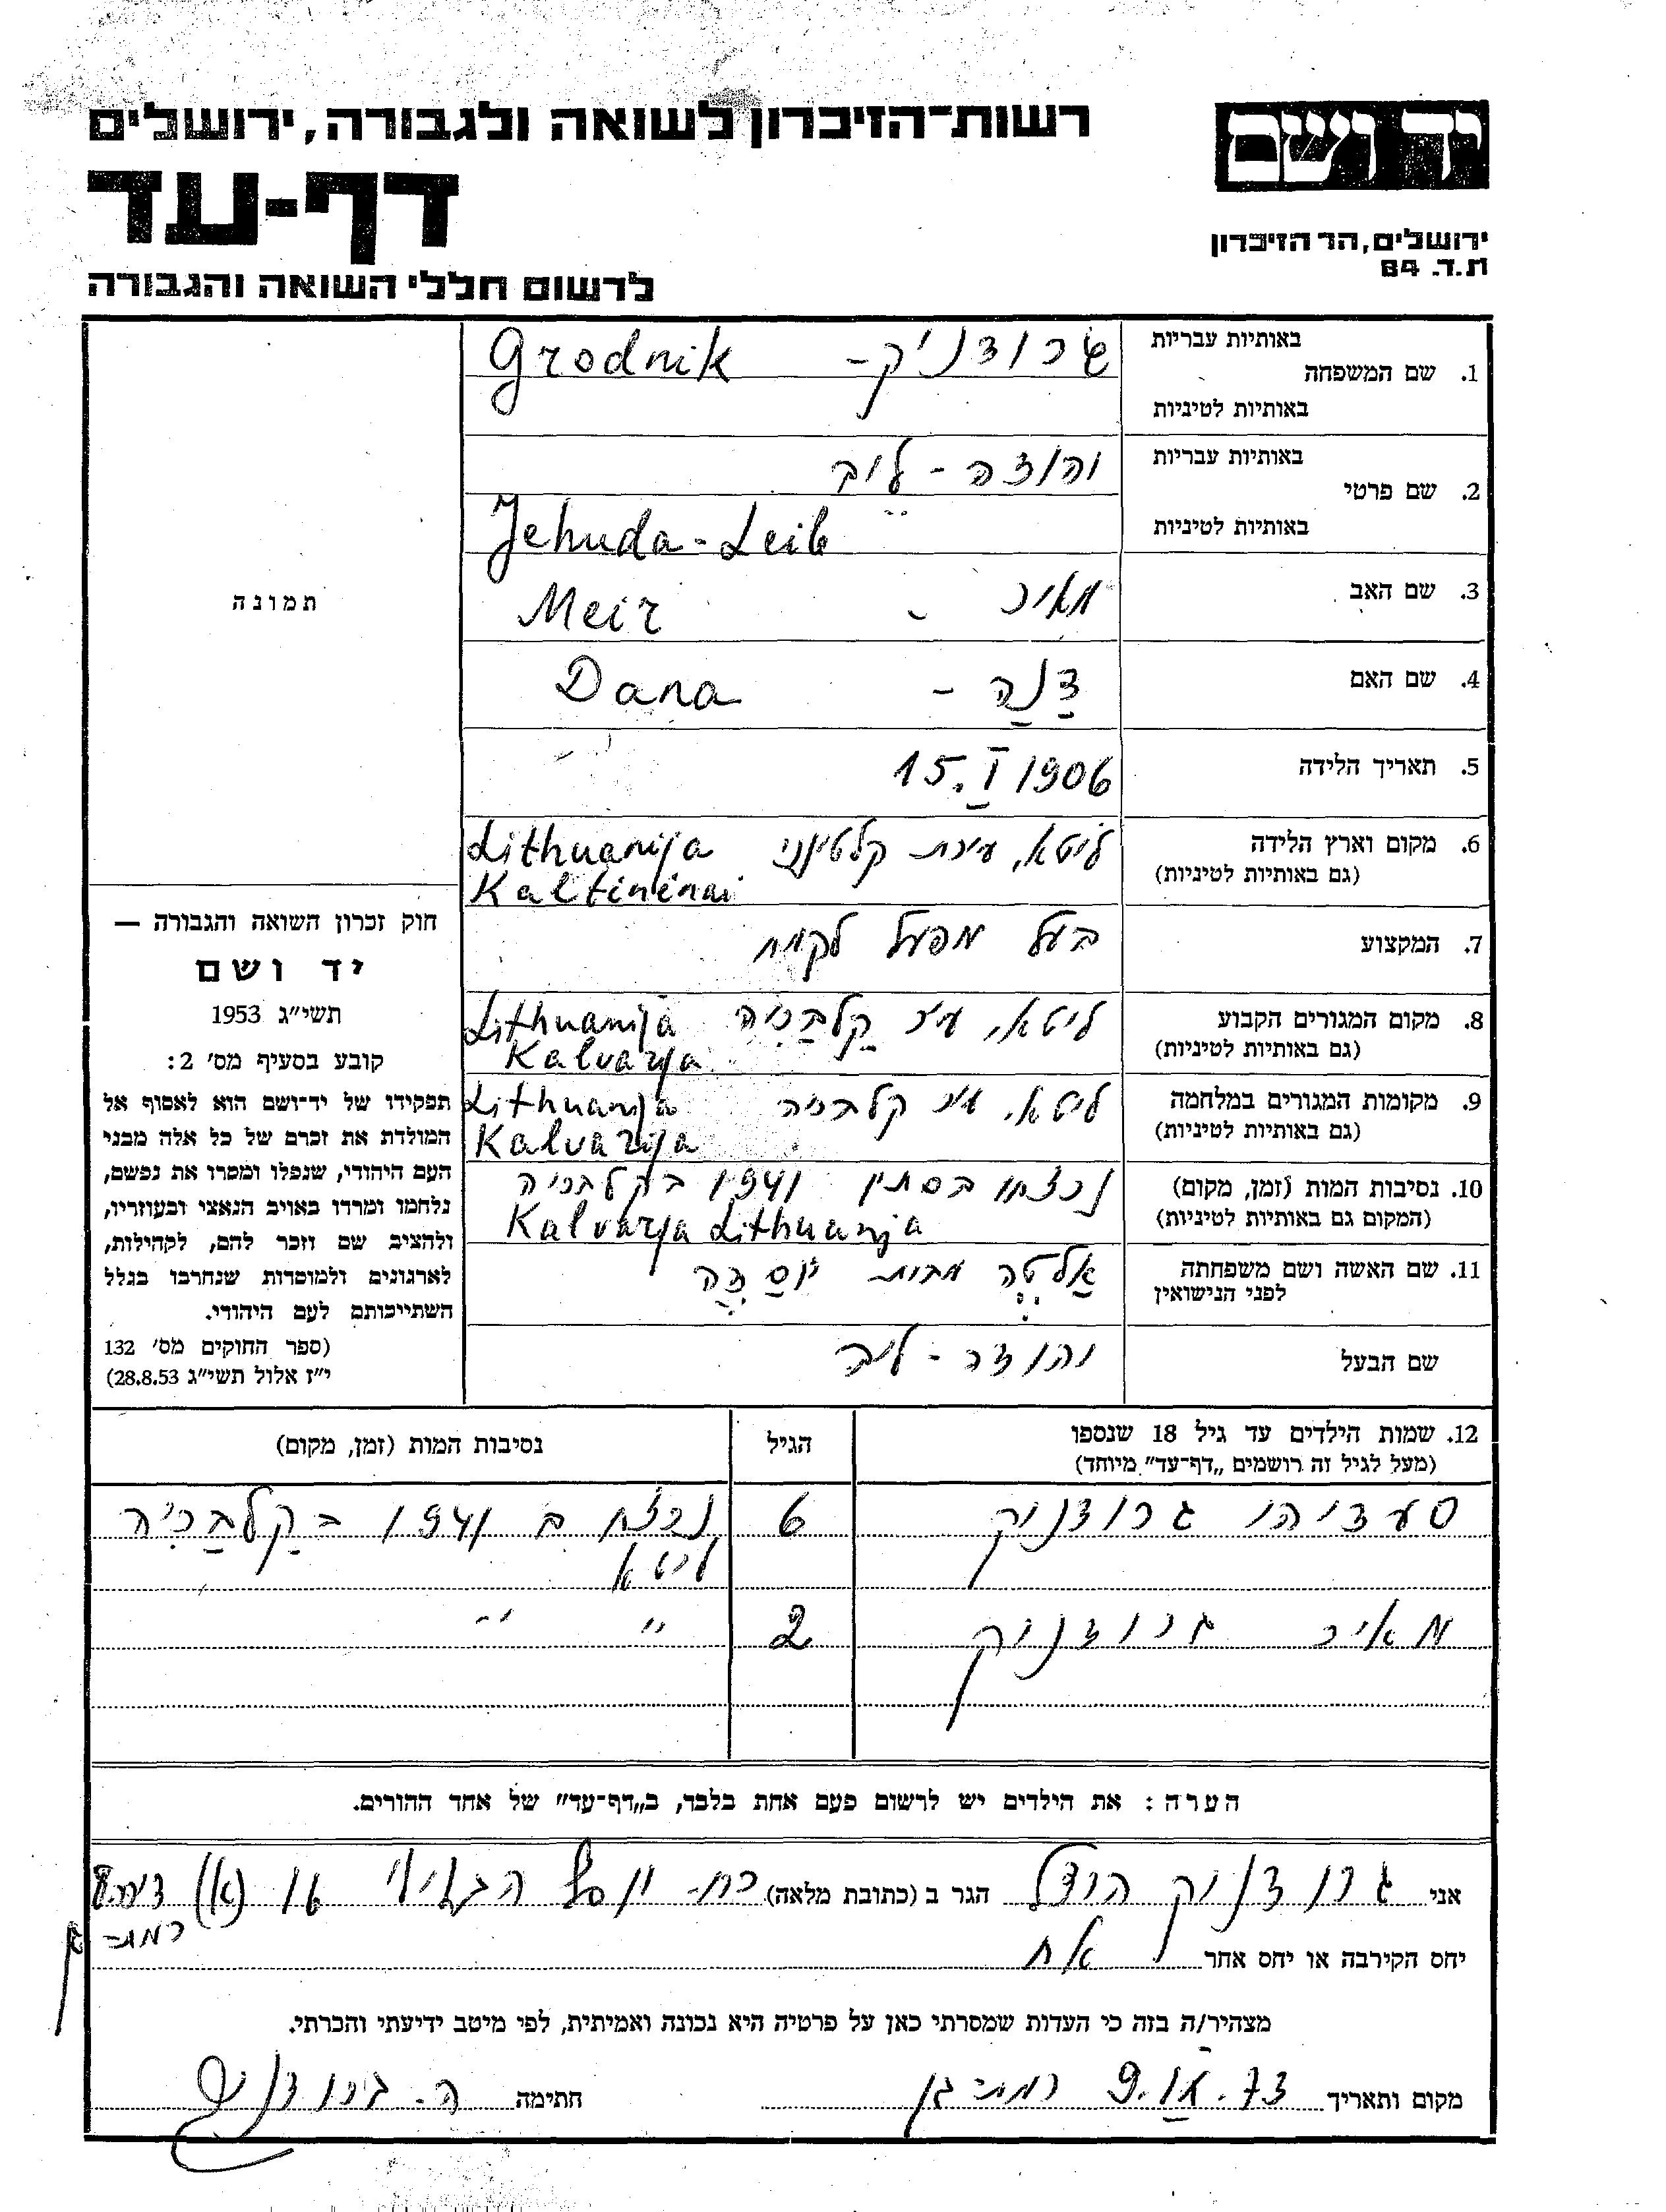 יד ושם
רשות־הזיכרון לשואה ולגבורה, ירושלים
דף-עד
ירושלים, הר הזיכרון
ת.ד. 84
לרשום חללי השואה והגבורה
באותיות עבריות
1. שם המשפחה
באותיות לטיניות
גרודניק - Grodnik
באותיות עבריות
2. שם פרטי
באותיות לטיניות
יהודה - לייב
Jehuda-Leib
3. שם האב
מאיר - Meir
4. שם האם
דַנָה - Dana
5. תאריך הלידה
15.I 1906
6. מקום וארץ הלידה
(גם באותיות לטיניות)
ליטא, עירת קלטיננוי Lithuanija
Kaltinėnai
7. המקצוע
בעל מפעל לקמח
8. מקום המגורים הקבוע
(גם באותיות לטיניות)
ליטא, עיר קַלבַריה Lithuanija
Kalvarja
9. מקומות המגורים במלחמה
(גם באותיות לטיניות)
ליטא, עיר קלבריה Lithuanija
Kalvarija
10. נסיבות המות (זמן, מקום)
(המקום גם באותיות לטיניות)
נרצחו בסתיו 1941 בקלבריה
Kalvarja Lithuanja
11. שם האשה ושם משפחתה
לפני הנישואין
אַלטֶה מבית
שם הבעל
יהודה - לייב
תמונה
חוק זכרון השואה והגבורה —
יד ושם
תשי״ג 1953
קובע בסעיף מס׳ 2:
תפקידו של יד־ושם הוא לאסוף אל
המולדת את זכרם של כל אלה מבני
העם היהודי, שנפלו ומסרו את נפשם,
נלחמו ומרדו באויב הנאצי ובעוזריו,
ולהציב שם וזכר להם, לקהילות,
לארגונים ולמוסדות שנחרבו בגלל
השתייכותם לעם היהודי.
(ספר החוקים מס׳ 132
י״ז אלול תשי״ג 28.8.53)
12. שמות הילדים עד גיל 18 שנספו
(מעל לגיל זה רושמים „דף־עד״ מיוחד)
הגיל
נסיבות המות (זמן, מקום)
סעדיהו גרודניק 6 נרצח ב 1941 בקַלבַריה
ליטא
מאיר גרודניק 2 ״ ״
הערה: את הילדים יש לרשום פעם אחת בלבד, ב„דף־עד״ של אחד ההורים.
אני גרודניק הגר ב (כתובת מלאה) רח- יוסף
רמת- גן
יחס הקירבה או יחס אחר אח
מצהיר/ה בזה כי העדות שמסרתי כאן על פרטיה היא נכונה ואמיתית, לפי מיטב ידיעתי והכרתי.
מקום ותאריך רמת-גן חתימה ה. גרודניק